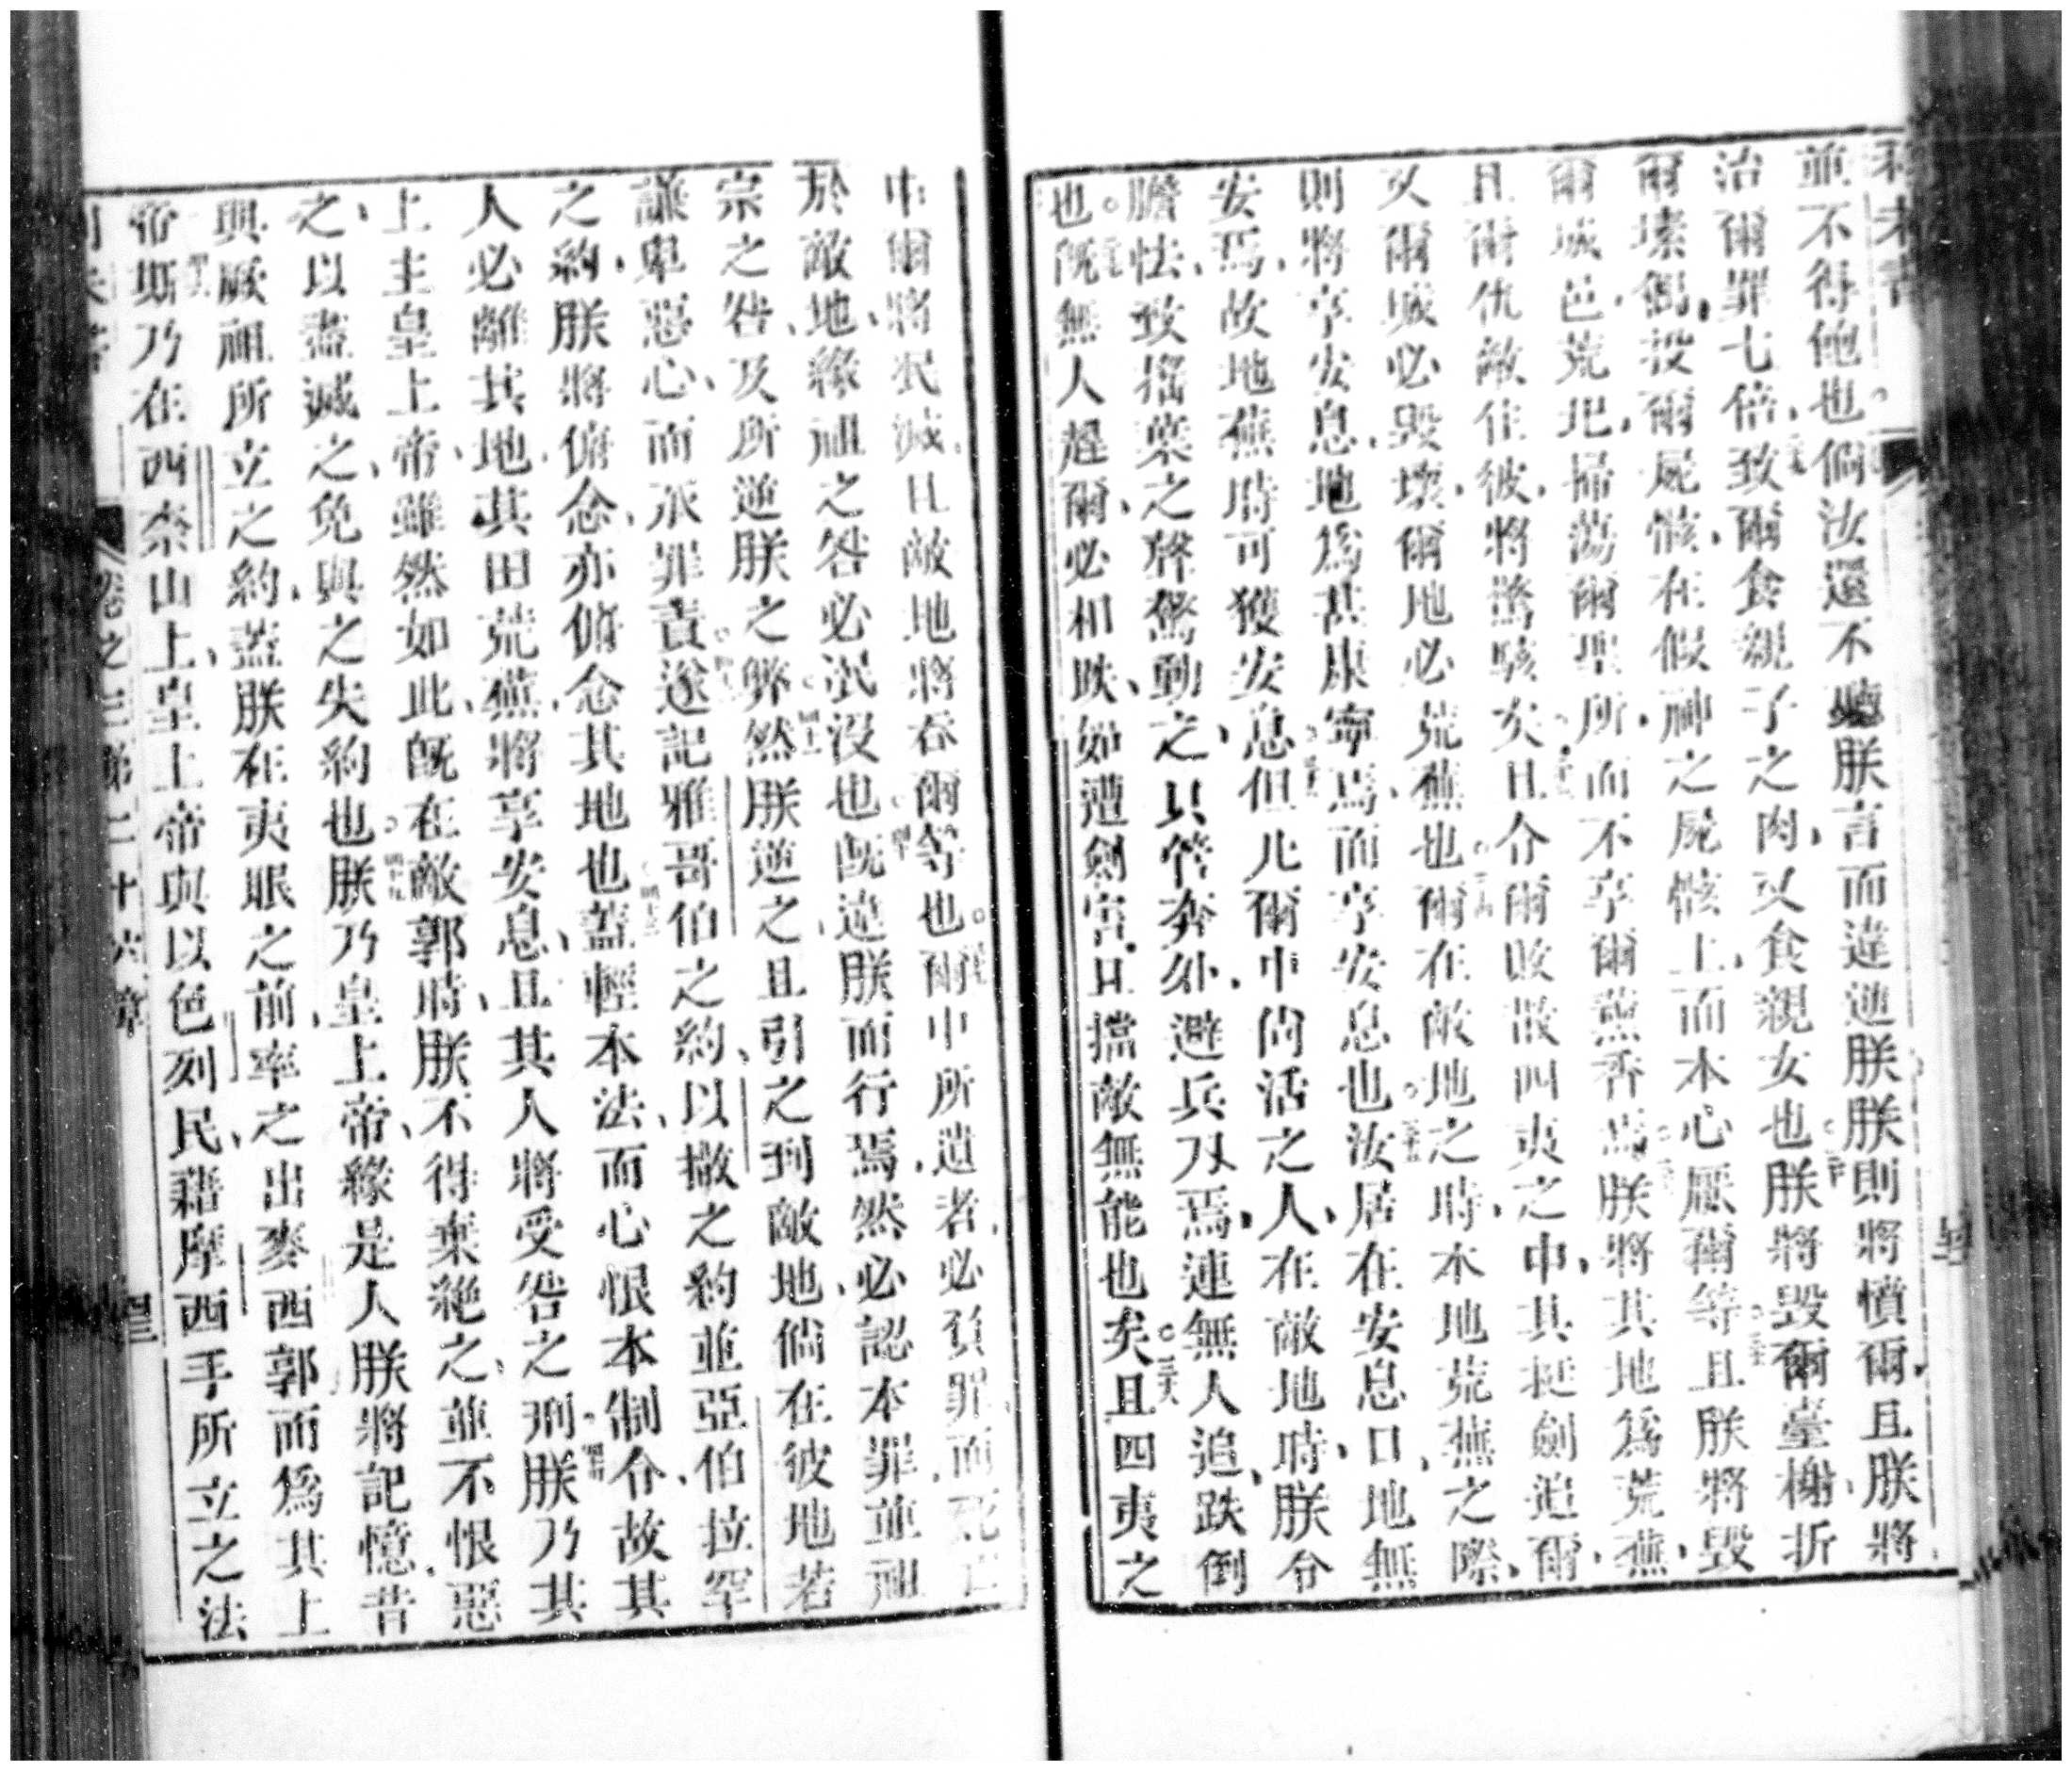 利未書
並不得他也。倘汝還不聽朕言而違逆朕朕則將憤爾、且朕將
治爾罪七倍、致爾食親子之肉、又食親女也。朕將毀爾臺榭、折
爾塑偶、投爾屍骸、在假神之屍骸上、而本心厭爾等。且朕將毀
爾城邑、荒圯、掃蕩爾聖所、而不享爾燕香焉。朕將其地爲荒蕪、
且爾仇敵住彼、將驚駭矣。且令爾敗散四夷之中、其挺劍追爾、
又爾城必毀壞、爾地必荒蕪也。爾在敵地之時、本地荒蕪之際、
則將享安息、地爲甚康寧焉、而享安息也。汝居在安息日、地無
安焉、故地蕪時可獲安息。但凡爾中尚活之人、在敵地時、朕令
膽怯、致搖葉之聲驚動之、只管奔外、避兵刃焉、連無人追、跌倒
也。旣無人趕爾、必相跌、如遭劍害、且擋敵無能也矣。且四夷之
中爾將泯滅、且敵地將吞爾等也。爾中所遺者、必負罪而死亡
於敵地、緣祖之咎必泯沒也。旣違朕而行焉、然必認本罪、並祖
宗之咎、及所逆朕之弊。然朕逆之、且引之到敵地、倘在彼地若
謙卑惡心、而承罪責。遂記雅哥伯之約、以撒之約、並亞伯拉罕
之約、朕將俯念、亦俯念其地也。蓋輕本法、而心恨本制令、故其
人必離其地、其田荒蕪、將享安息、且其人將受咎之刑。朕乃其
上主皇上帝、雖然如此、旣在敵郭時、朕不得棄絕之、並不恨惡
之、以盡滅之、免與之失約也。朕乃皇上帝、緣是人朕將記憶、昔
與厥祖所立之約、蓋朕在夷眼之前、率之出麥西郭而爲其上
帝。斯乃在西奈山上、皇上帝與以色列民、藉摩西手所立之法
利未書 卷之三第二十六章